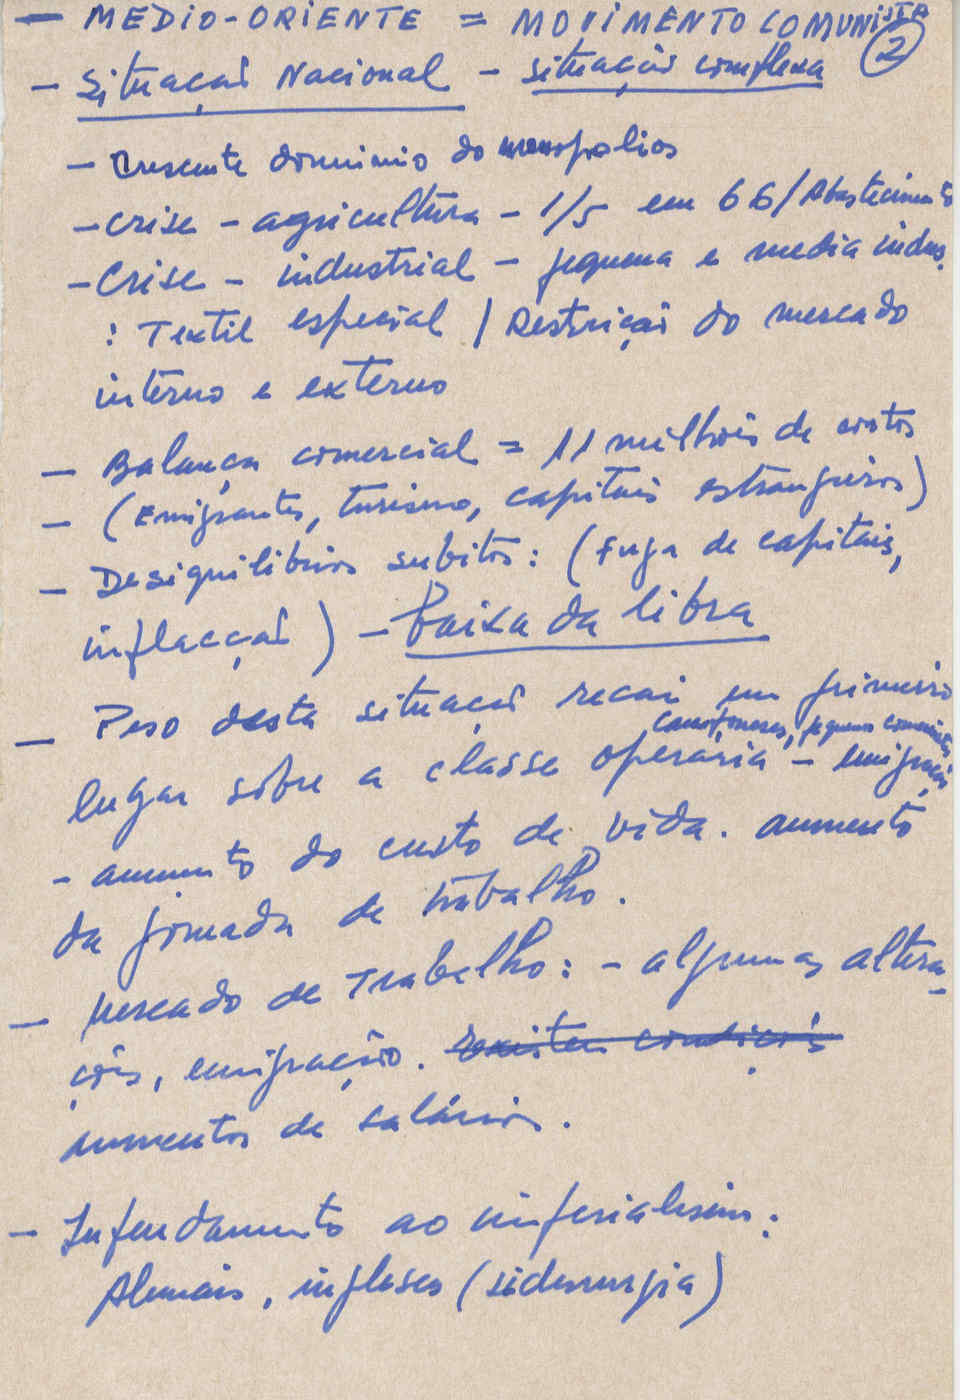 - MEDIO-ORIENTE = MOVIMENTO COMUNISTA
2
- Situação Nacional - situação complexa
- Crescente dominio do monopolios
- crise - agricultura - 1/5 em 66/Abastecimento
- Crise - industrial - pequena e media indus.
: Textil especial / Restrição do mercado
interno e externo
- Balança comercial = 11 milhões de contos
- (Emigrantes, turismo, capitais estrangeiros)
- Desiquilibrios subitos: (Fuga de capitais,
inflacção) - baixa da libra
- Peso desta situação recai em primeiro
camponeses, pequenos comerciantes
lugar sôbre a classe operaria - emigração
- aumento do custo de vida. aumento
da jornada de trabalho.
- Mercado de Trabalho: - algumas altera-
ções, emigração. Existem condições
aumentos de salários.
- Infeudamento ao imperialismo:
Alemães, ingleses (siderurgia)